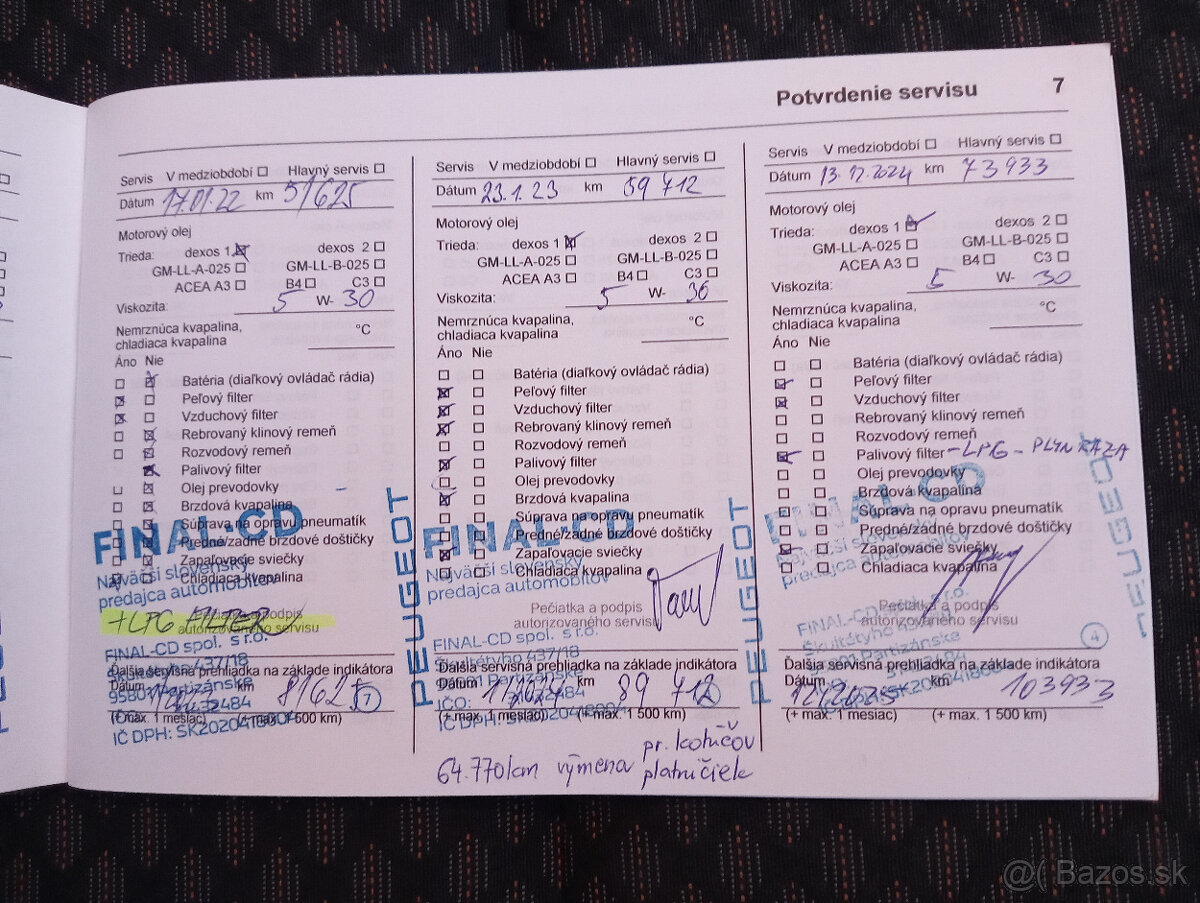 Potvrdenie servisu 7
Servis V medziobdobí Hlavný servis
Dátum 17.01.22 km 51625
Motorový olej
Trieda: dexos 1 dexos 2
GM-LL-A-025 GM-LL-B-025
ACEA A3 B4 C3
Viskozita: 5 W- 30
Nemrznúca kvapalina,
chladiaca kvapalina °C
Áno Nie
Batéria (diaľkový ovládač rádia)
Peľový filter
Vzduchový filter
Rebrovaný klinový remeň
Rozvodový remeň
Palivový filter
Olej prevodovky
Brzdová kvapalina
Súprava na opravu pneumatík
Predné/zadné brzdové doštičky
Zapaľovacie sviečky
Chladiaca kvapalina
FINAL-CD
Najväčší slovenský
predajca automobilov
PEUGEOT
+LPG FILTER
Pečiatka a podpis
autorizovaného servisu
FINAL-CD spol. s r.o.
Škultétyho 437/18
95801 Partizánske
IČ DPH: SK2020418604
Ďalšia servisná prehliadka na základe indikátora
Dátum km 81625 1
(+ max. 1 mesiac) (+ max. 1 500 km)
Servis V medziobdobí Hlavný servis
Dátum 23.1.23 km 59 712
Motorový olej
Trieda: dexos 1 dexos 2
GM-LL-A-025 GM-LL-B-025
ACEA A3 B4 C3
Viskozita: 5 W- 30
Nemrznúca kvapalina,
chladiaca kvapalina °C
Áno Nie
Batéria (diaľkový ovládač rádia)
Peľový filter
Vzduchový filter
Rebrovaný klinový remeň
Rozvodový remeň
Palivový filter
Olej prevodovky
Brzdová kvapalina
Súprava na opravu pneumatík
Predné/zadné brzdové doštičky
Zapaľovacie sviečky
Chladiaca kvapalina
FINAL-CD
Najväčší slovenský
predajca automobilov
PEUGEOT
Pečiatka a podpis
autorizovaného servisu
FINAL-CD spol. s r.o.
Škultétyho 437/18
95801 Partizánske
IČO:
IČ DPH:
Ďalšia servisná prehliadka na základe indikátora
Dátum km 89 712
(+ max. 1 mesiac) (+ max. 1 500 km)
64.770km výmena pr. kotúčov
platničiek
Servis V medziobdobí Hlavný servis
Dátum 13.12.2024 km 73933
Motorový olej
Trieda: dexos 1 dexos 2
GM-LL-A-025 GM-LL-B-025
ACEA A3 B4 C3
Viskozita: 5 W- 30
Nemrznúca kvapalina,
chladiaca kvapalina °C
Áno Nie
Batéria (diaľkový ovládač rádia)
Peľový filter
Vzduchový filter
Rebrovaný klinový remeň
Rozvodový remeň
Palivový filter - LPG - PLYN FÁZA
Olej prevodovky
Brzdová kvapalina
Súprava na opravu pneumatík
Predné/zadné brzdové doštičky
Zapaľovacie sviečky
Chladiaca kvapalina
Najväčší slovenský
predajca automobilov
PEUGEOT
Pečiatka a podpis
autorizovaného servisu
4
Ďalšia servisná prehliadka na základe indikátora
Dátum 12/2025 km 103933
(+ max. 1 mesiac) (+ max. 1 500 km)
Bazos.sk